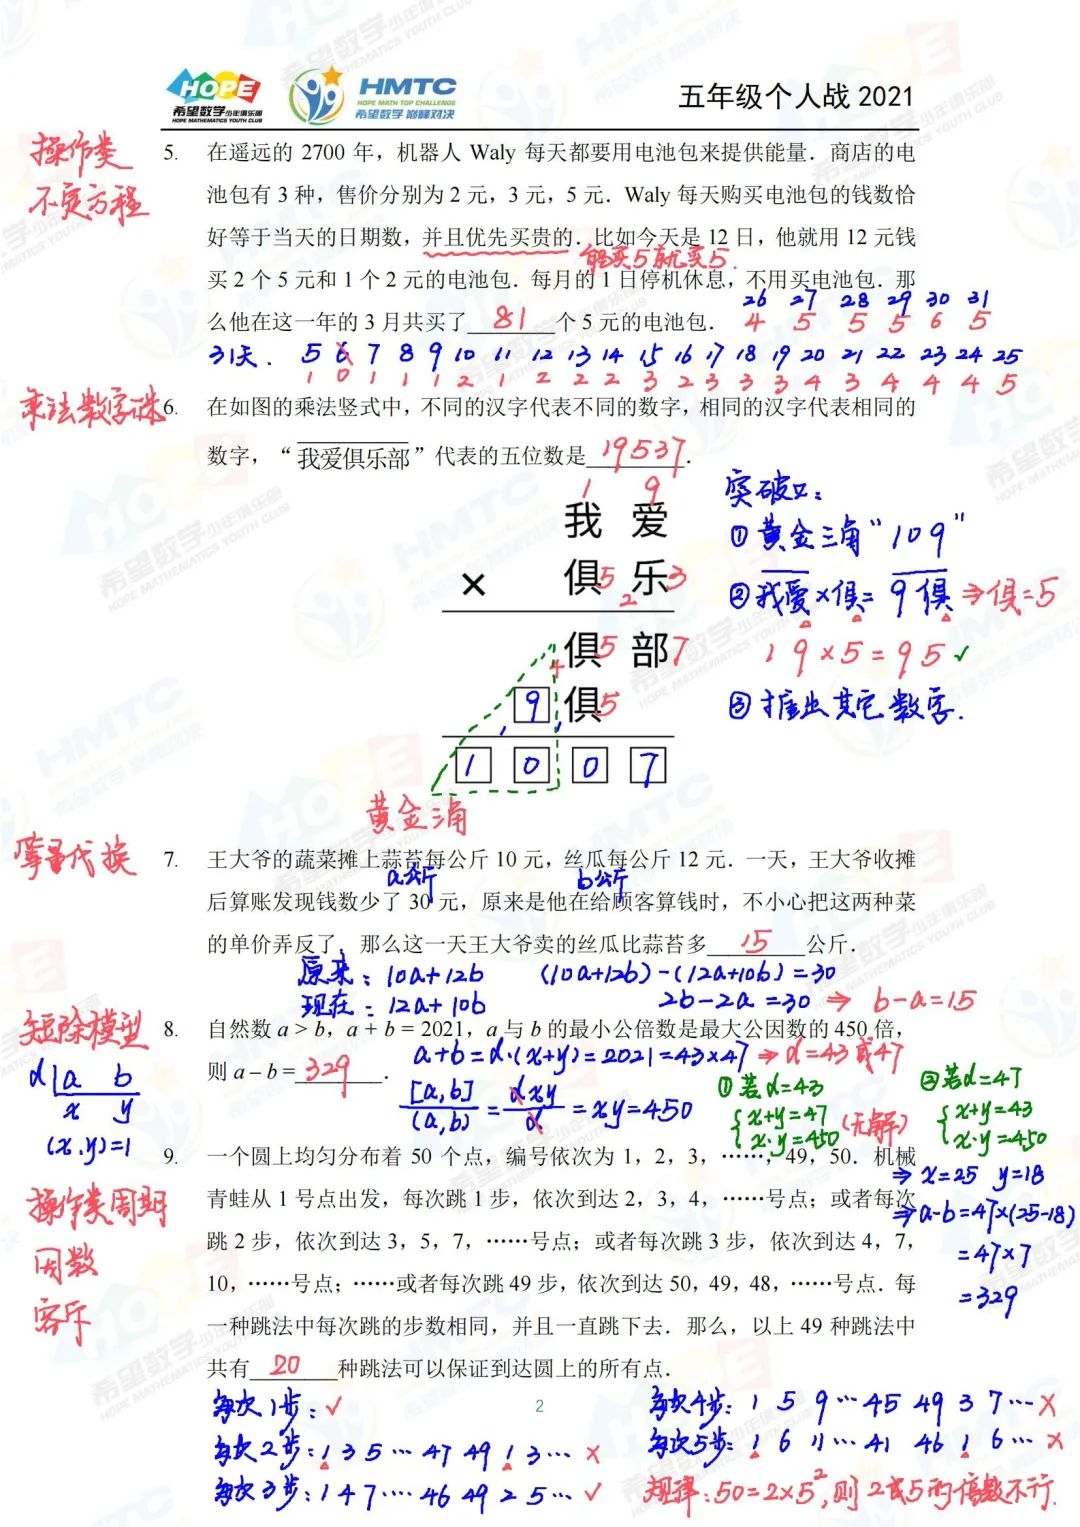 HOPE
希望数学少年俱乐部
HOPE MATHEMATICS YOUTH CLUB
HMTC
HOPE MATH TOP CHALLENGE
希望数学 巅峰对决
五年级个人战 2021
操作类
不定方程
5. 在遥远的 2700 年，机器人 Waly 每天都要用电池包来提供能量．商店的电
池包有 3 种，售价分别为 2 元，3 元，5 元．Waly 每天购买电池包的钱数恰
好等于当天的日期数，并且优先买贵的．比如今天是 12 日，他就用 12 元钱
能买5就买5.
买 2 个 5 元和 1 个 2 元的电池包．每月的 1 日停机休息，不用买电池包．那
26 27 28 29 30 31
么他在这一年的 3 月共买了 81 个 5 元的电池包．
4 5 5 5 6 5
31天. 5 6 7 8 9 10 11 12 13 14 15 16 17 18 19 20 21 22 23 24 25
1 0 1 1 1 2 1 2 2 2 3 2 3 3 3 4 3 4 4 4 5
乘法数字谜
6. 在如图的乘法竖式中，不同的汉字代表不同的数字，相同的汉字代表相同的
数字，“我爱俱乐部”代表的五位数是 19537 ．
1 9
我 爱
× 俱5 2 乐3
4 俱5 部7
9 俱5
1 0 0 7
黄金三角
突破口：
① 黄金三角“109”
② 我爱×俱=9俱 ⇒俱=5
19×5=95✓
③ 推出其它数字.
等量代换
7. 王大爷的蔬菜摊上蒜苔每公斤 10 元，丝瓜每公斤 12 元．一天，王大爷收摊
a公斤 b公斤
后算账发现钱数少了 30 元，原来是他在给顾客算钱时，不小心把这两种菜
的单价弄反了．那么这一天王大爷卖的丝瓜比蒜苔多 15 公斤．
原来：10a+12b (10a+12b)-(12a+10b)=30
现在：12a+10b 2b-2a=30 ⇒ b-a=15
短除模型
8. 自然数 a > b，a + b = 2021，a 与 b 的最小公倍数是最大公因数的 450 倍，
a+b=d·(x+y)=2021=43×47 ⇒ d=43或47
则 a – b = 329 ．
d a b
x y
(x,y)=1
[a,b]/(a,b)=dxy/d=xy=450
① 若d=43
x+y=47
x·y=450
(无解)
② 若d=47
x+y=43
x·y=450
⇒ x=25 y=18
⇒ a-b=47×(25-18)
=47×7
=329
操作类周期
因数
容斥
9. 一个圆上均匀分布着 50 个点，编号依次为 1，2，3，……，49，50．机械
青蛙从 1 号点出发，每次跳 1 步，依次到达 2，3，4，……号点；或者每次
跳 2 步，依次到达 3，5，7，……号点；或者每次跳 3 步，依次到达 4，7，
10，……号点；……或者每次跳 49 步，依次到达 50，49，48，……号点．每
一种跳法中每次跳的步数相同，并且一直跳下去．那么，以上 49 种跳法中
共有 20 种跳法可以保证到达圆上的所有点．
2
每次1步：✓
每次2步：1 3 5 … 47 49 1 3… ×
每次3步：1 4 7 …. 46 49 2 5… ✓
每次4步：1 5 9 … 45 49 3 7…×
每次5步：1 6 11 … 41 46 1 6… ×
规律：50=2×5²，则 2或5的倍数不行.